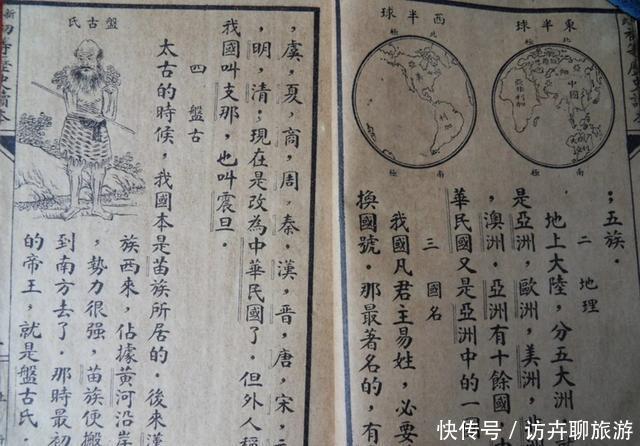 東半球
北
極
中國
南
極
西半球
北
極
南
極
；五族．
二 地理
地上大陸，分五大洲
是亞洲，歐洲，美洲，
，澳洲．亞洲有十餘國
華民國又是亞洲中的一
三 國名
我國凡君主易姓，必要
換國號．那最著名的，有
，虞，夏，商，周，秦，漢，晉，唐，宋，
，明，清；現在是改為中華民國了，但外人稱
我國叫支那，也叫震旦．
四 盤古
太古的時候，我國本是苗族所居的．後來漢
族西來，佔據黃河沿岸
，勢力很強，苗族便搬
到南方去了．那時最初
的帝王，就是盤古氏．
盤古氏
快传号/访卉聊旅游